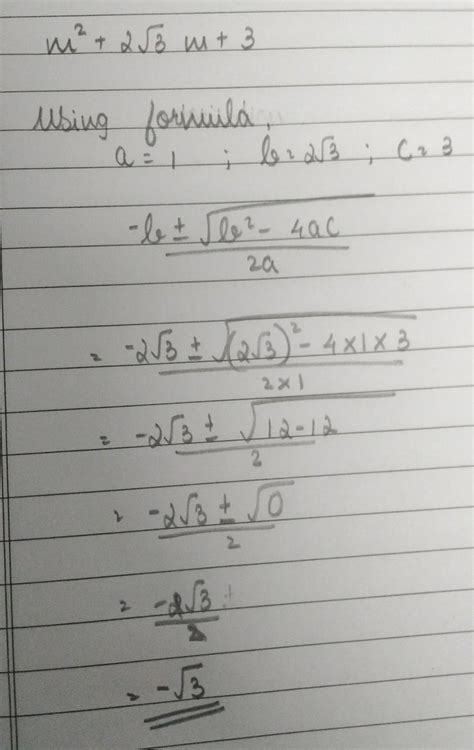 m² + 2√3 m + 3
Using formula,
a = 1 ; b = 2√3 ; c = 3
-b ± √b² - 4ac
2a
= -2√3 ± √(2√3)² - 4×1×3
2×1
= -2√3 ± √12-12
2
= -2√3 ± √0
2
= -2√3
2
= -√3